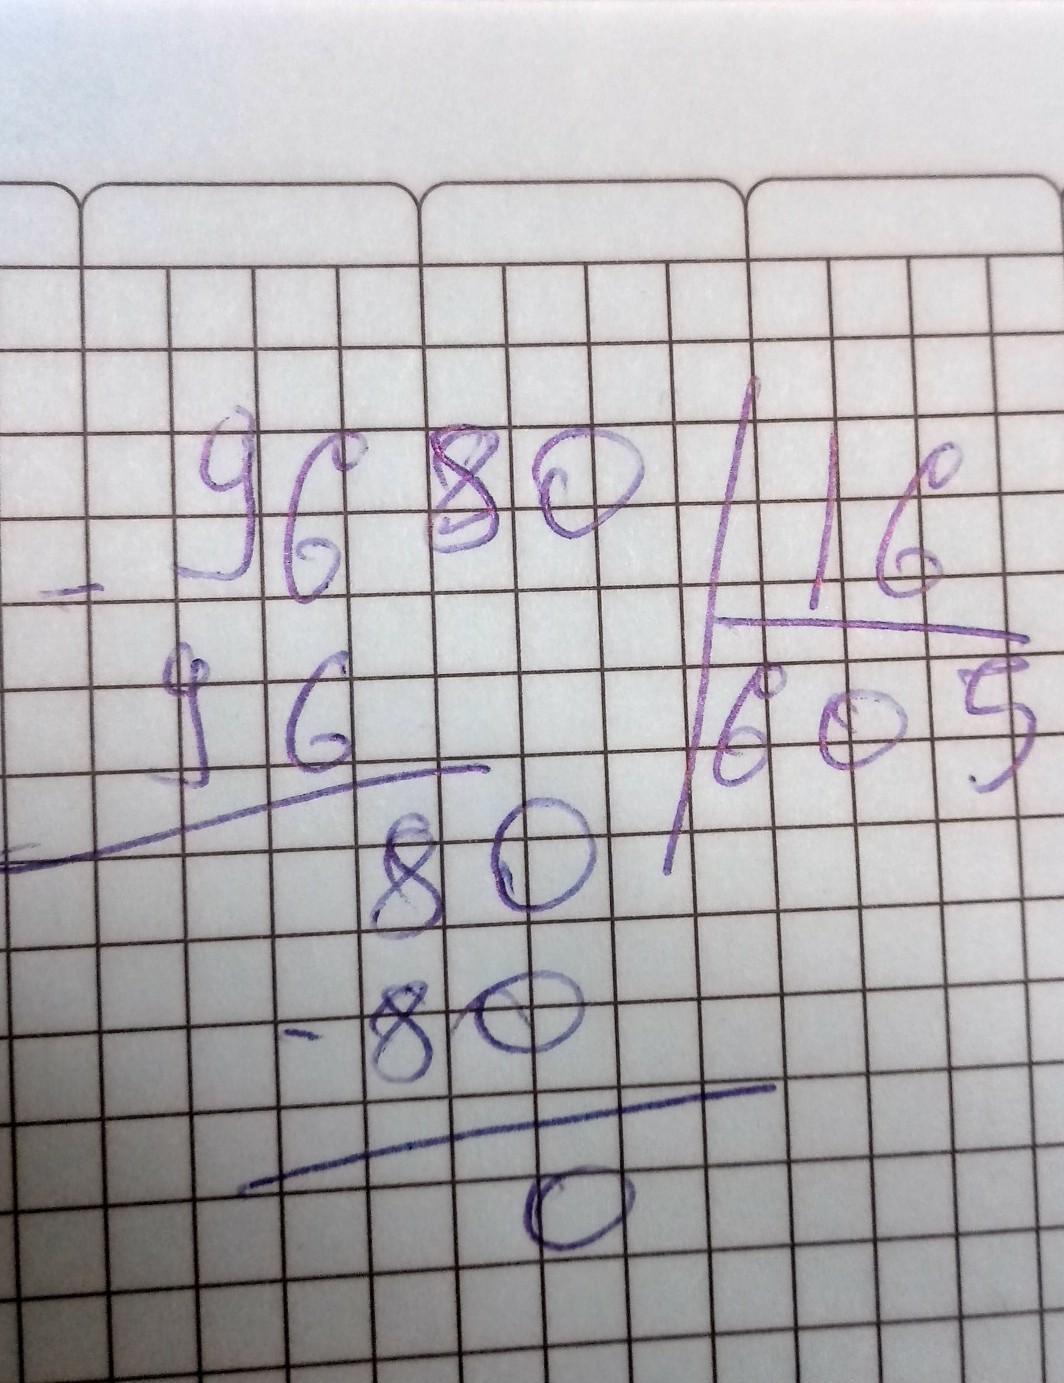 9680 | 16
- 96 | 605
80
- 80
0